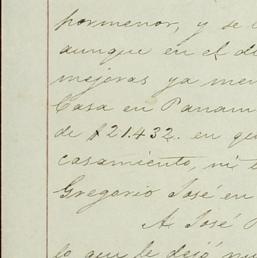 pormenor, y se
aunque en el di
mejoras ya men
Casa en Panam
de $21.432. en qu
casamiento, ni e
Gregorio José en
A José
lo que le dejó